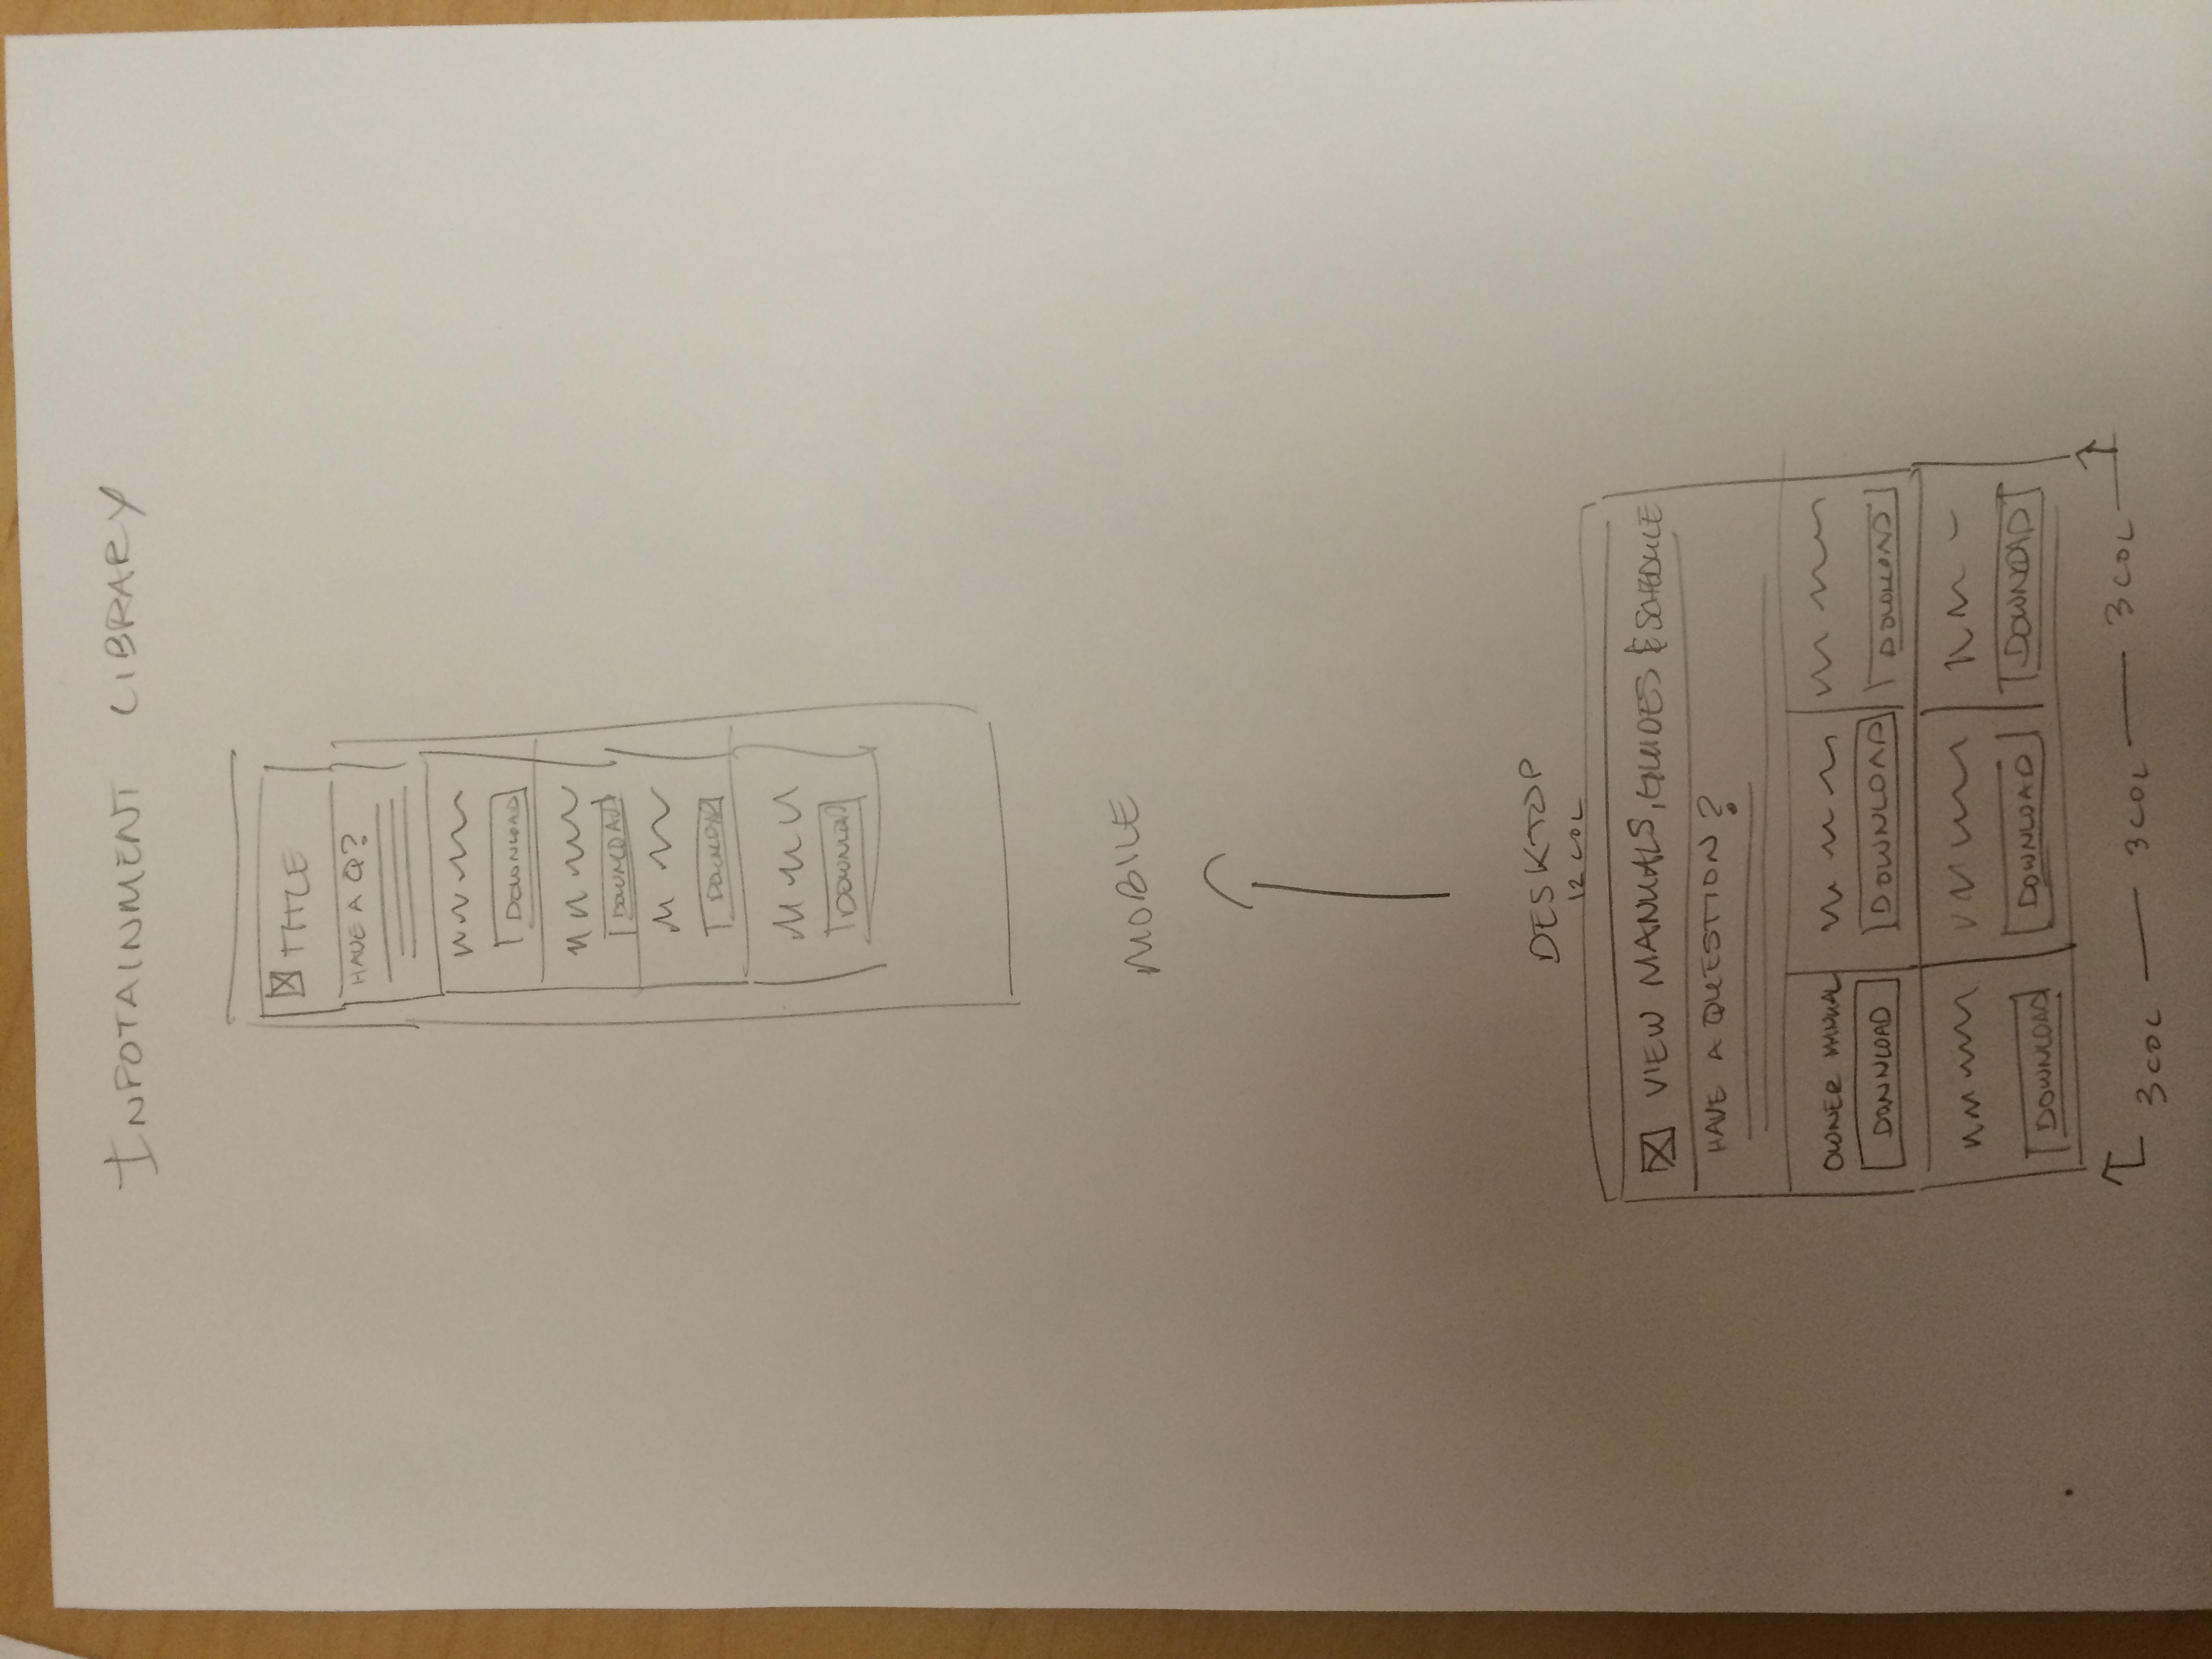 INFOTAINMENT LIBRARY
TITLE
HAVE A Q?
DOWNLOAD
DOWNLOAD
DOWNLOAD
DOWNLOAD
MOBILE
DESKTOP
12 COL
VIEW MANUALS, GUIDES & SCHEDULE
HAVE A QUESTION?
OWNER MANUAL
DOWNLOAD DOWNLOAD DOWNLOAD
DOWNLOAD DOWNLOAD DOWNLOAD
3 COL — 3 COL — 3 COL